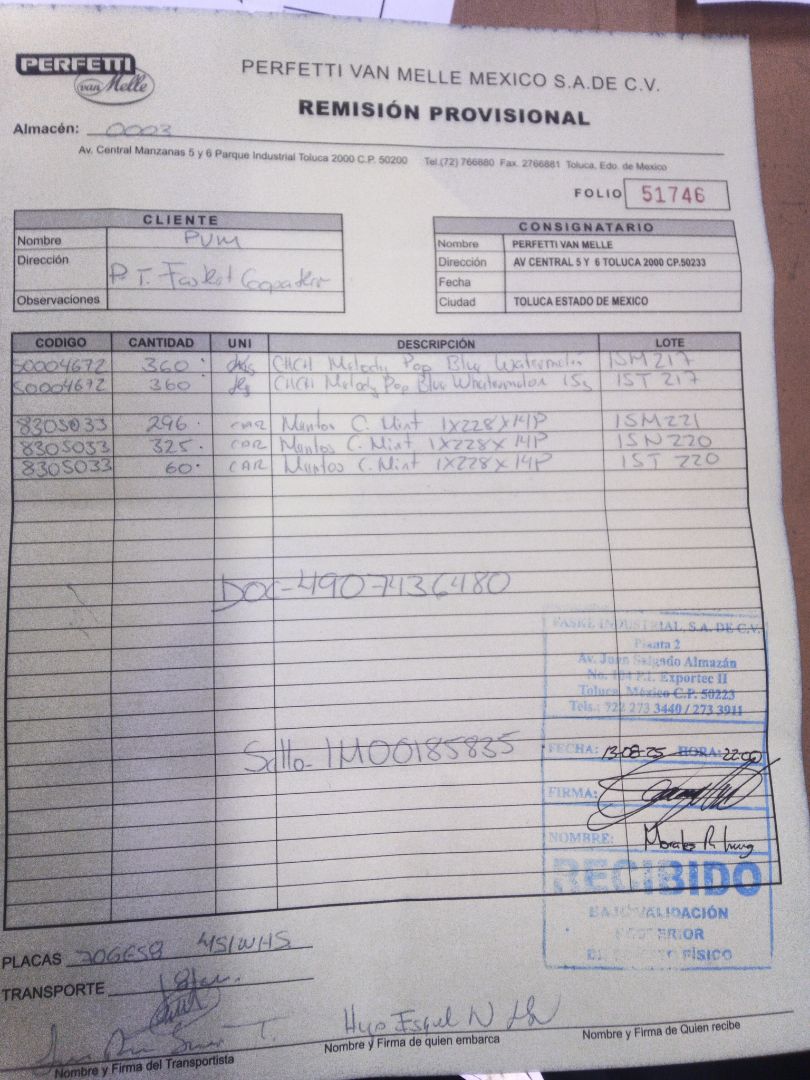 PERFETTI van Melle
PERFETTI VAN MELLE MEXICO S.A.DE C.V.
REMISIÓN PROVISIONAL
Almacén: 0003
Av. Central Manzanas 5 y 6 Parque Industrial Toluca 2000 C.P. 50200 Tel.(72) 766880 Fax. 2766881 Toluca, Edo. de Mexico
FOLIO 51746
CLIENTE
Nombre PVM
Dirección P. T.
Observaciones
CONSIGNATARIO
Nombre PERFETTI VAN MELLE
Dirección AV CENTRAL 5 Y 6 TOLUCA 2000 CP.50233
Fecha
Ciudad TOLUCA ESTADO DE MEXICO
CODIGO CANTIDAD UNI DESCRIPCIÓN LOTE
50004672 360 CHCH Melody Pop Blue Watermelon ISM 217
50004672 360 CHCH Melody Pop Blue Whatermelon 15g IST 217
8305033 296 CAR Mentos C. Mint 1X228X14P ISM221
8305033 325 CAR Mentos C. Mint 1X228X14P ISN 220
8305033 60 CAR Mentos C. Mint 1X228X14P IST 220
DOC-4907436480
FASKE INDUSTRIAL, S.A. DE C.V.
Planta 2
Av. Juan Salgado Almazán
No. 104 P.I. Exportec II
Toluca, México C.P. 50223
Tels.: 722 273 3440 / 273 3911
Sello- IM00185835
FECHA: 13-08-25 HORA: 22:00
FIRMA:
NOMBRE: Morales R.
RECIBIDO
BAJO VALIDACIÓN
POSTERIOR
FÍSICO
PLACAS 45IWHS
TRANSPORTE
Nombre y Firma del Transportista
Hugo
Nombre y Firma de quien embarca
Nombre y Firma de Quien recibe